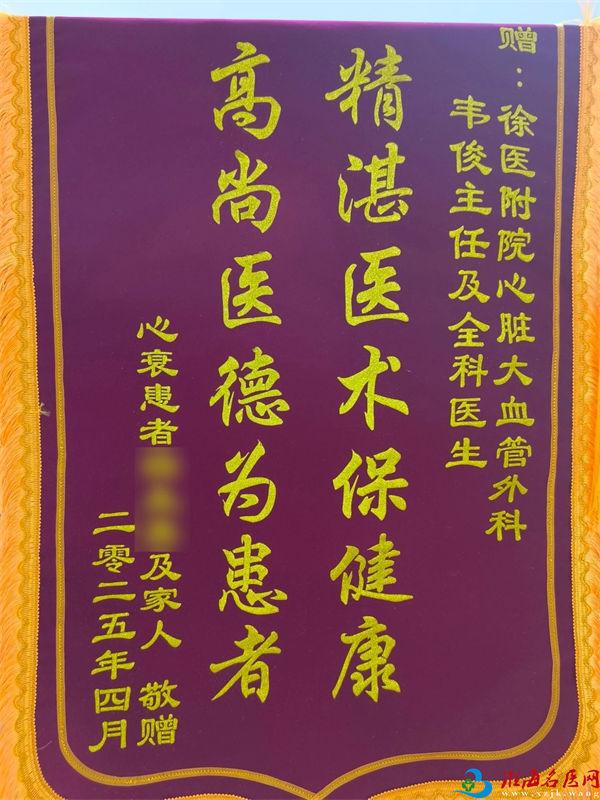 赠：徐医附院心脏大血管外科
韦俊主任及全科医生
精湛医术保健康
高尚医德为患者
心衰患者
及家人 敬赠
二零二五年四月
淮海名医网
www.xzjk.wang